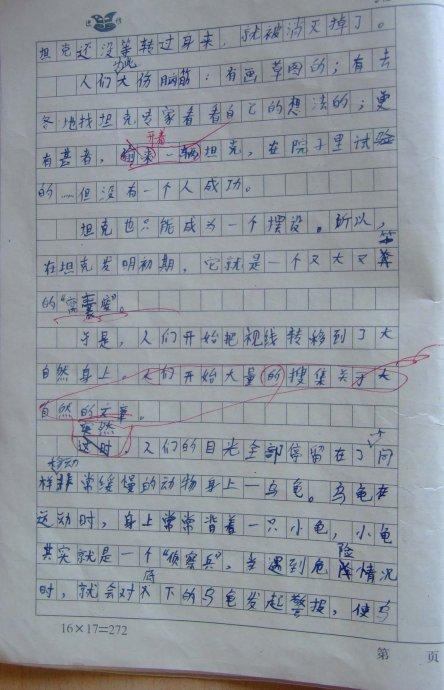 坦克还没等转过身来，就被消灭掉了。
为此
人们大伤脑筋：有画草图的；有去
各地找坦克专家看看自己的想法的；更
开着
有甚者，翻来一辆坦克，在院子里试验
的……但没有一个人成功。
坦克也只能成为一个摆设。所以，
在坦克发明初期，它就是一个又大又笨
的“窝囊废”。
于是，人们开始把视线转移到了大
自然身上。人们开始大量的搜集关于大
自然的文章。
突然
这时，人们的目光全部停留在了同
移动
样非常缓慢的动物身上—乌龟。乌龟在
运动时，身上常常背着一只小龟，小龟
其实就是一个“侦察兵”，当遇到危险情况
时，就会对底下的乌龟发起警报，使乌
16×17=272
第 页